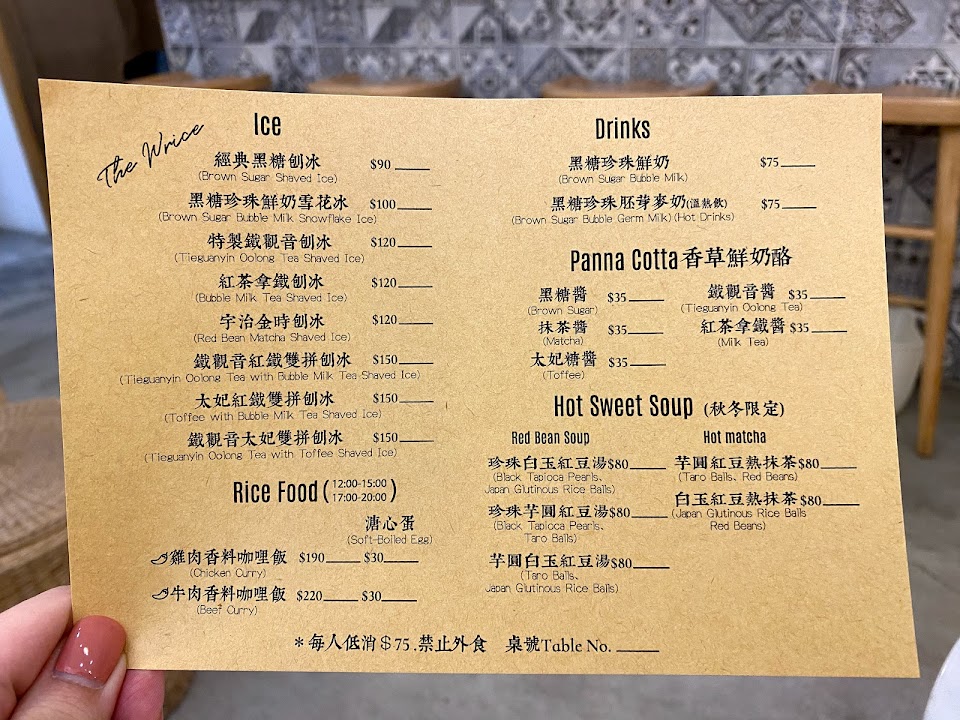 The Wrice
Ice
經典黑糖刨冰 $90
(Brown Sugar Shaved Ice)
黑糖珍珠鮮奶雪花冰 $100
(Brown Sugar Bubble Milk Snowflake Ice)
特製鐵觀音刨冰 $120
(Tieguanyin Oolong Tea Shaved Ice)
紅茶拿鐵刨冰 $120
(Bubble Milk Tea Shaved Ice)
宇治金時刨冰 $120
(Red Bean Matcha Shaved Ice)
鐵觀音紅鐵雙拼刨冰 $150
(Tieguanyin Oolong Tea with Bubble Milk Tea Shaved Ice)
太妃紅鐵雙拼刨冰 $150
(Toffee with Bubble Milk Tea Shaved Ice)
鐵觀音太妃雙拼刨冰 $150
(Tieguanyin Oolong Tea with Toffee Shaved Ice)
Rice Food (12:00-15:00
17:00-20:00)
溏心蛋
(Soft-Boiled Egg)
雞肉香料咖哩飯 $190 $30
(Chicken Curry)
牛肉香料咖哩飯 $220 $30
(Beef Curry)
Drinks
黑糖珍珠鮮奶 $75
(Brown Sugar Bubble Milk)
黑糖珍珠胚芽麥奶(溫熱飲) $75
(Brown Sugar Bubble Germ Milk) (Hot Drinks)
Panna Cotta 香草鮮奶酪
黑糖醬 $35 鐵觀音醬 $35
(Brown Sugar) (Tieguanyin Oolong Tea)
抹茶醬 $35 紅茶拿鐵醬 $35
(Matcha) (Milk Tea)
太妃糖醬 $35
(Toffee)
Hot Sweet Soup (秋冬限定)
Red Bean Soup
珍珠白玉紅豆湯 $80
(Black Tapioca Pearls、
Japan Glutinous Rice Balls)
珍珠芋圓紅豆湯 $80
(Black Tapioca Pearls、
Taro Balls)
芋圓白玉紅豆湯 $80
(Taro Balls、
Japan Glutinous Rice Balls)
Hot matcha
芋圓紅豆熱抹茶 $80
(Taro Balls、Red Beans)
白玉紅豆熱抹茶 $80
(Japan Glutinous Rice Balls
Red Beans)
*每人低消$75.禁止外食 桌號Table No.